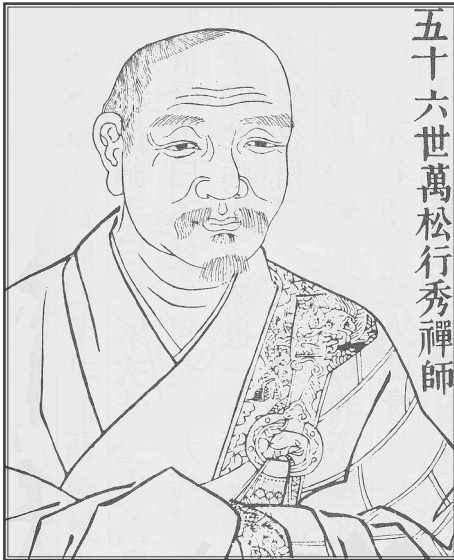 五十六世萬松行秀禪師